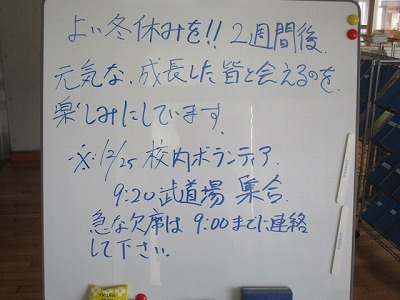 よい冬休みを!! 2週間後、
元気な、成長した皆と会えるのを、
楽しみにしています。
※12/25 校内ボランティア.
9:20 武道場 集合.
急な欠席は 9:00までに連絡
して下さい